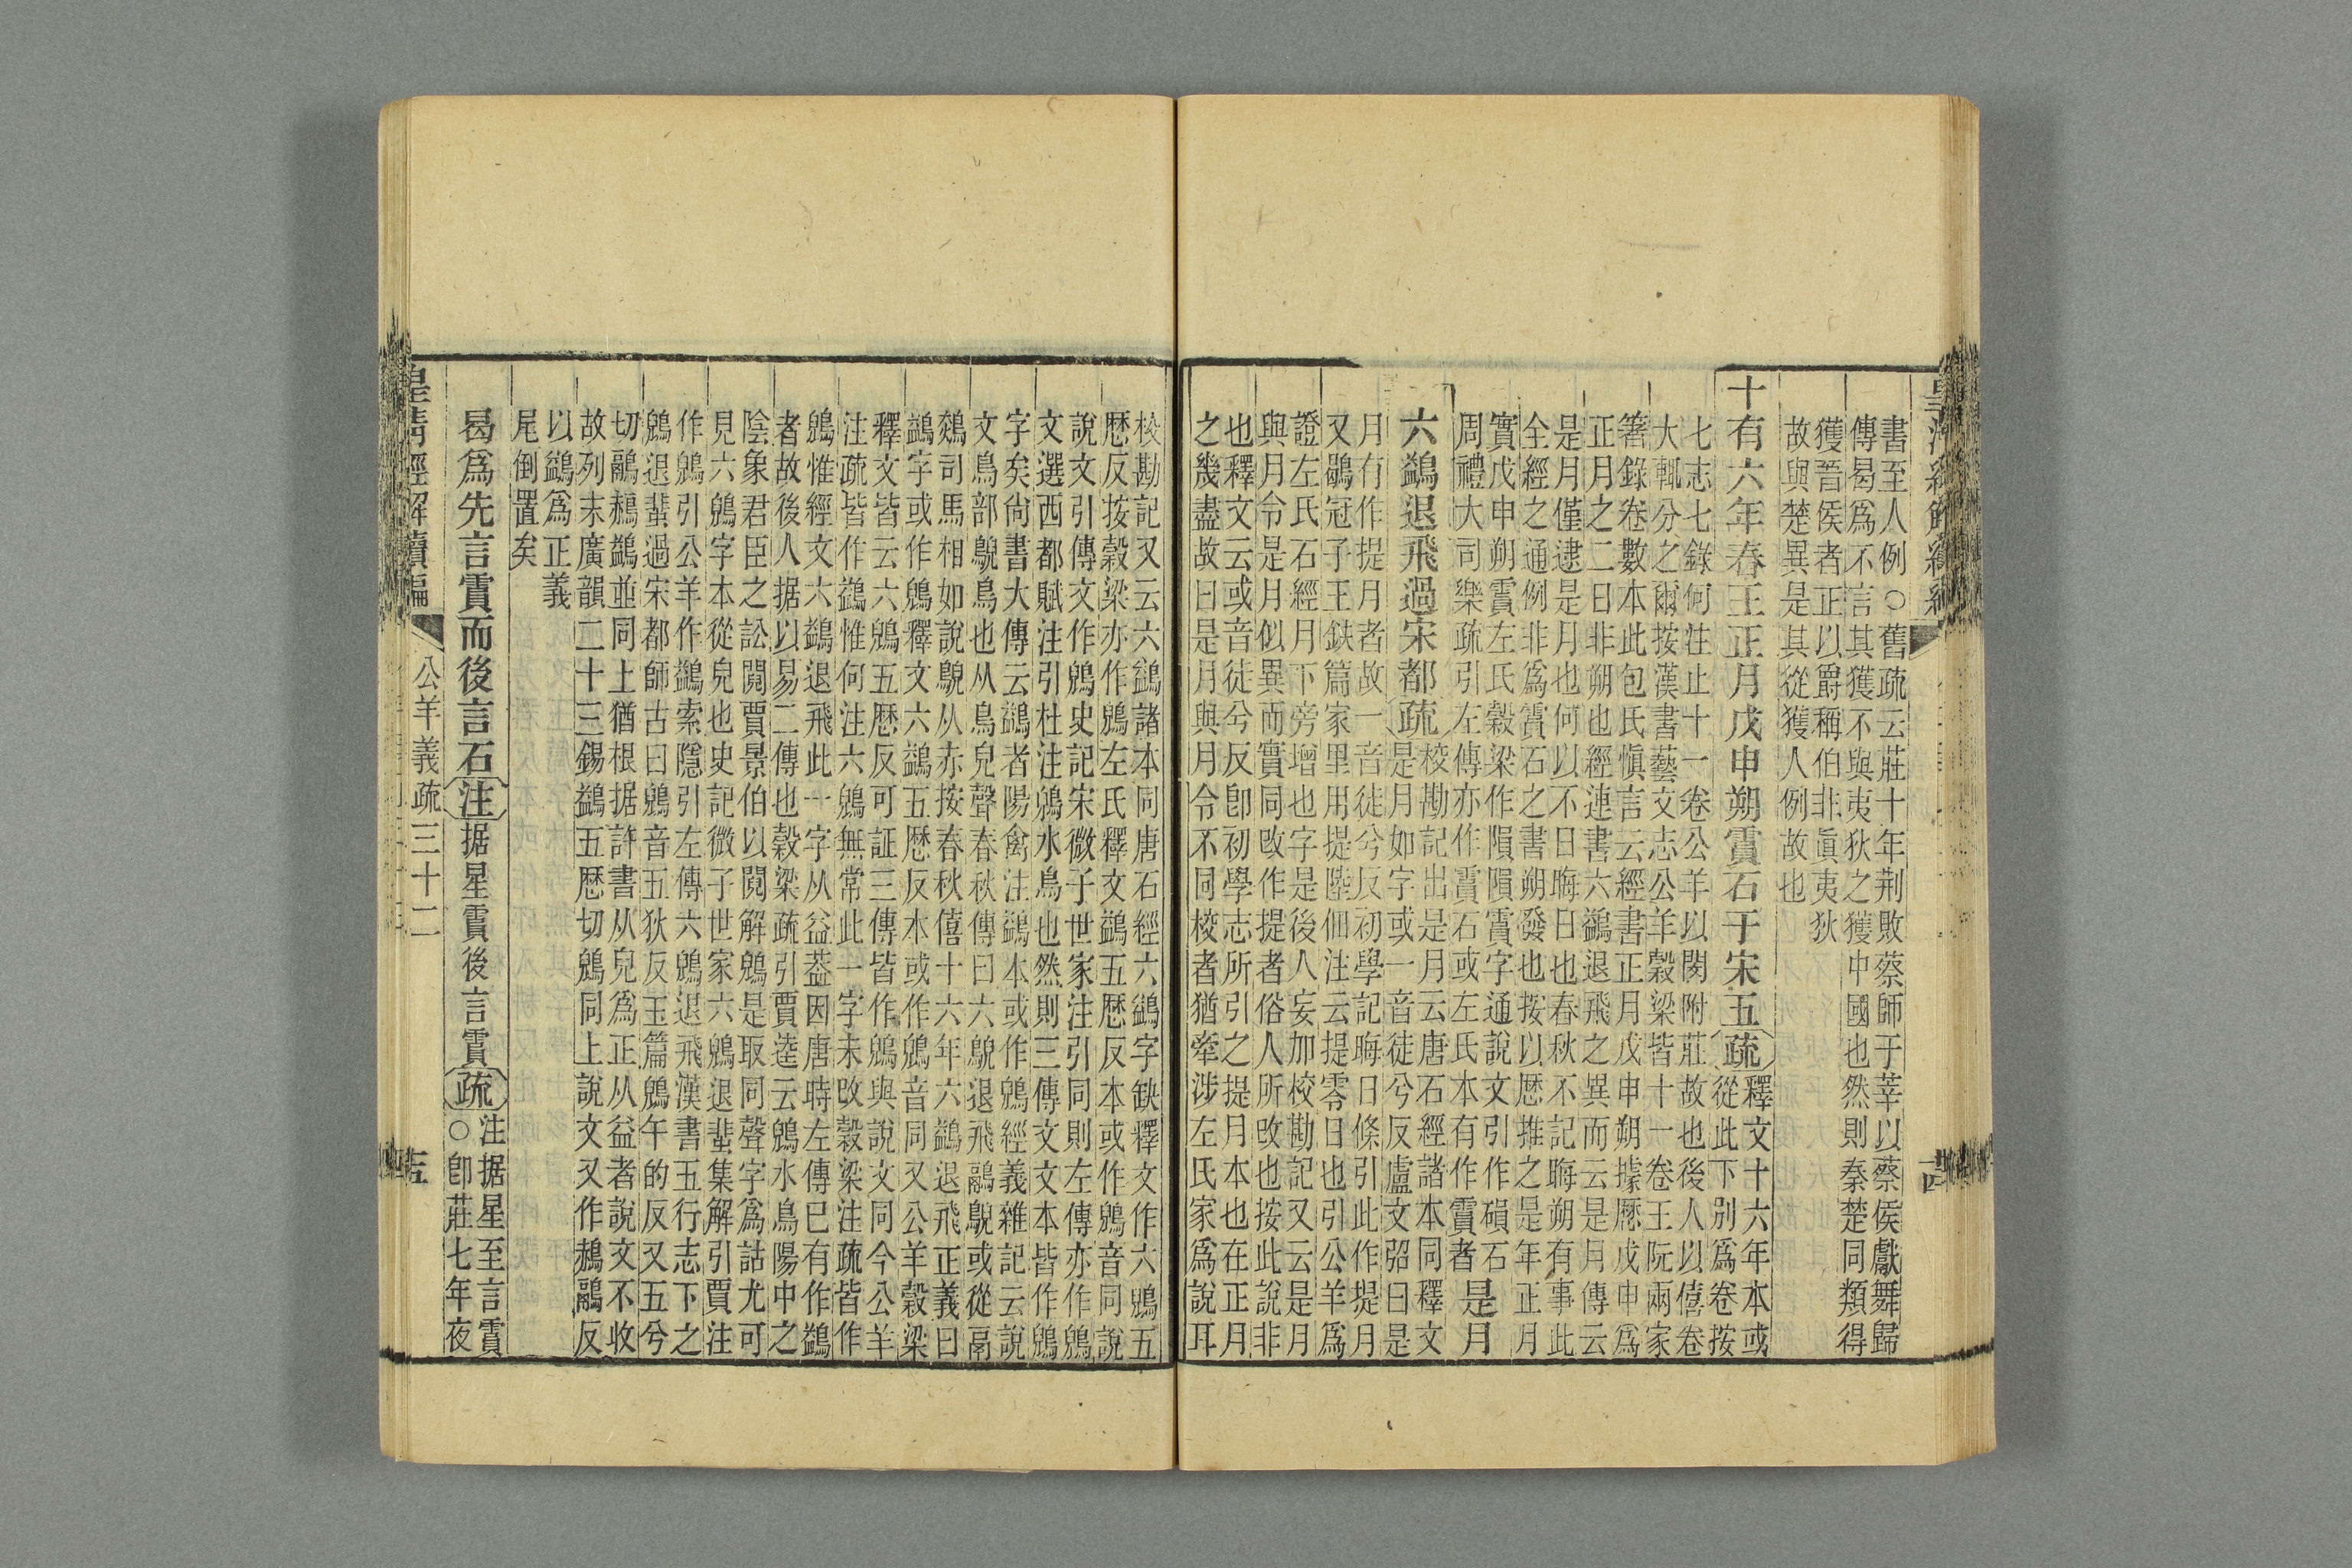 書至人例○舊疏云莊十年荆敗蔡師于莘以蔡侯獻舞歸
傳曷爲不言其獲不與夷狄之獲中國也然則秦楚同類得
獲晉侯者正以爵稱伯非眞夷狄
故與楚異是其從獲人例故也
十有六年春王正月戊申朔霣石于宋五疏釋文十六年本或
從此下别爲卷按
七志七錄何注止十一卷公羊以閔附莊故也後人以僖卷
大輒分之爾按漢書藝文志公羊穀梁皆十一卷王阮兩家
箸錄卷數本此包氏愼言云經書正月戊申朔據厯戊申爲
正月之二日非朔也經連書六鷁退飛之異而云是月傳云
是月僅逮是月也何以不日晦日也春秋不記晦朔有事此
全經之通例非爲霣石之書朔發也按以厯推之是年正月
實戊申朔霣左氏穀梁作隕隕霣字通說文引作磒石
周禮大司樂疏引左傳亦作霣石或左氏本有作霣者是月
六鷁退飛過宋都疏校勘記出是月云唐石經諸本同釋文
是月如字或一音徒兮反盧文弨曰是
月有作提月者故一音徒兮反初學記晦日條引此作提月
又鶡冠子王鈇篇家里用提陸佃注云提零日也引公羊爲
證左氏石經月下旁增也字是後人妄加校勘記又云是月
與月令是月似異而實同改作提者俗人所改也按此說非
也釋文云或音徒兮反卽初學志所引之提月本也在正月
之幾盡故曰是月與月令不同校者猶牽涉左氏家爲說耳
校勘記又云六鷁諸本同唐石經六鷁字缺釋文作六鶂五
厯反按穀梁亦作鶂左氏釋文鷁五厯反本或作鶂音同說
說文引傳文作鶂史記宋微子世家注引同則左傳亦作鶂
文選西都賦注引杜注鶂水鳥也然則三傳文文本皆作鶂
字矣尙書大傳云鷁者陽禽注鷁本或作鶂經義雜記云說
文鳥部鶃鳥也从鳥兒聲春秋傳曰六鶃退飛鷊鶃或從鬲
鷊司馬相如說鶃从赤按春秋僖十六年六鷁退飛正義曰
鷁字或作鶂釋文六鷁五厯反本或作鶂音同又公羊穀梁
釋文皆云六鶂五厯反可証三傳皆作鶂與說文同今公羊
注疏皆作鷁惟何注六鶂無常此一字未改穀梁注疏皆作
鶂惟經文六鷁退飛此一字从益葢因唐時左傳已有作鷁
者故後人据以易二傳也穀梁疏引賈逵云鶂水鳥陽中之
陰象君臣之訟鬩賈景伯以鬩解鶂是取同聲字爲詁尤可
見六鶂字本從兒也史記微子世家六鶂退蜚集解引賈注
作鶂引公羊作鷁索隱引左傳六鶂退飛漢書五行志下之
鶂退蜚過宋都師古曰鶂音五狄反玉篇鶂午的反又五兮
切鷊䴈鷁並同上猶根据許書从兒爲正从益者說文不收
故列末廣韻二十三錫鷁五厯切鶂同上說文又作鷊䴈反
以鷁爲正義
尾倒置矣
曷爲先言霣而後言石注据星霣後言霣疏注据星至言霣
○卽莊七年夜
皇清經解續編
公羊義疏三十二